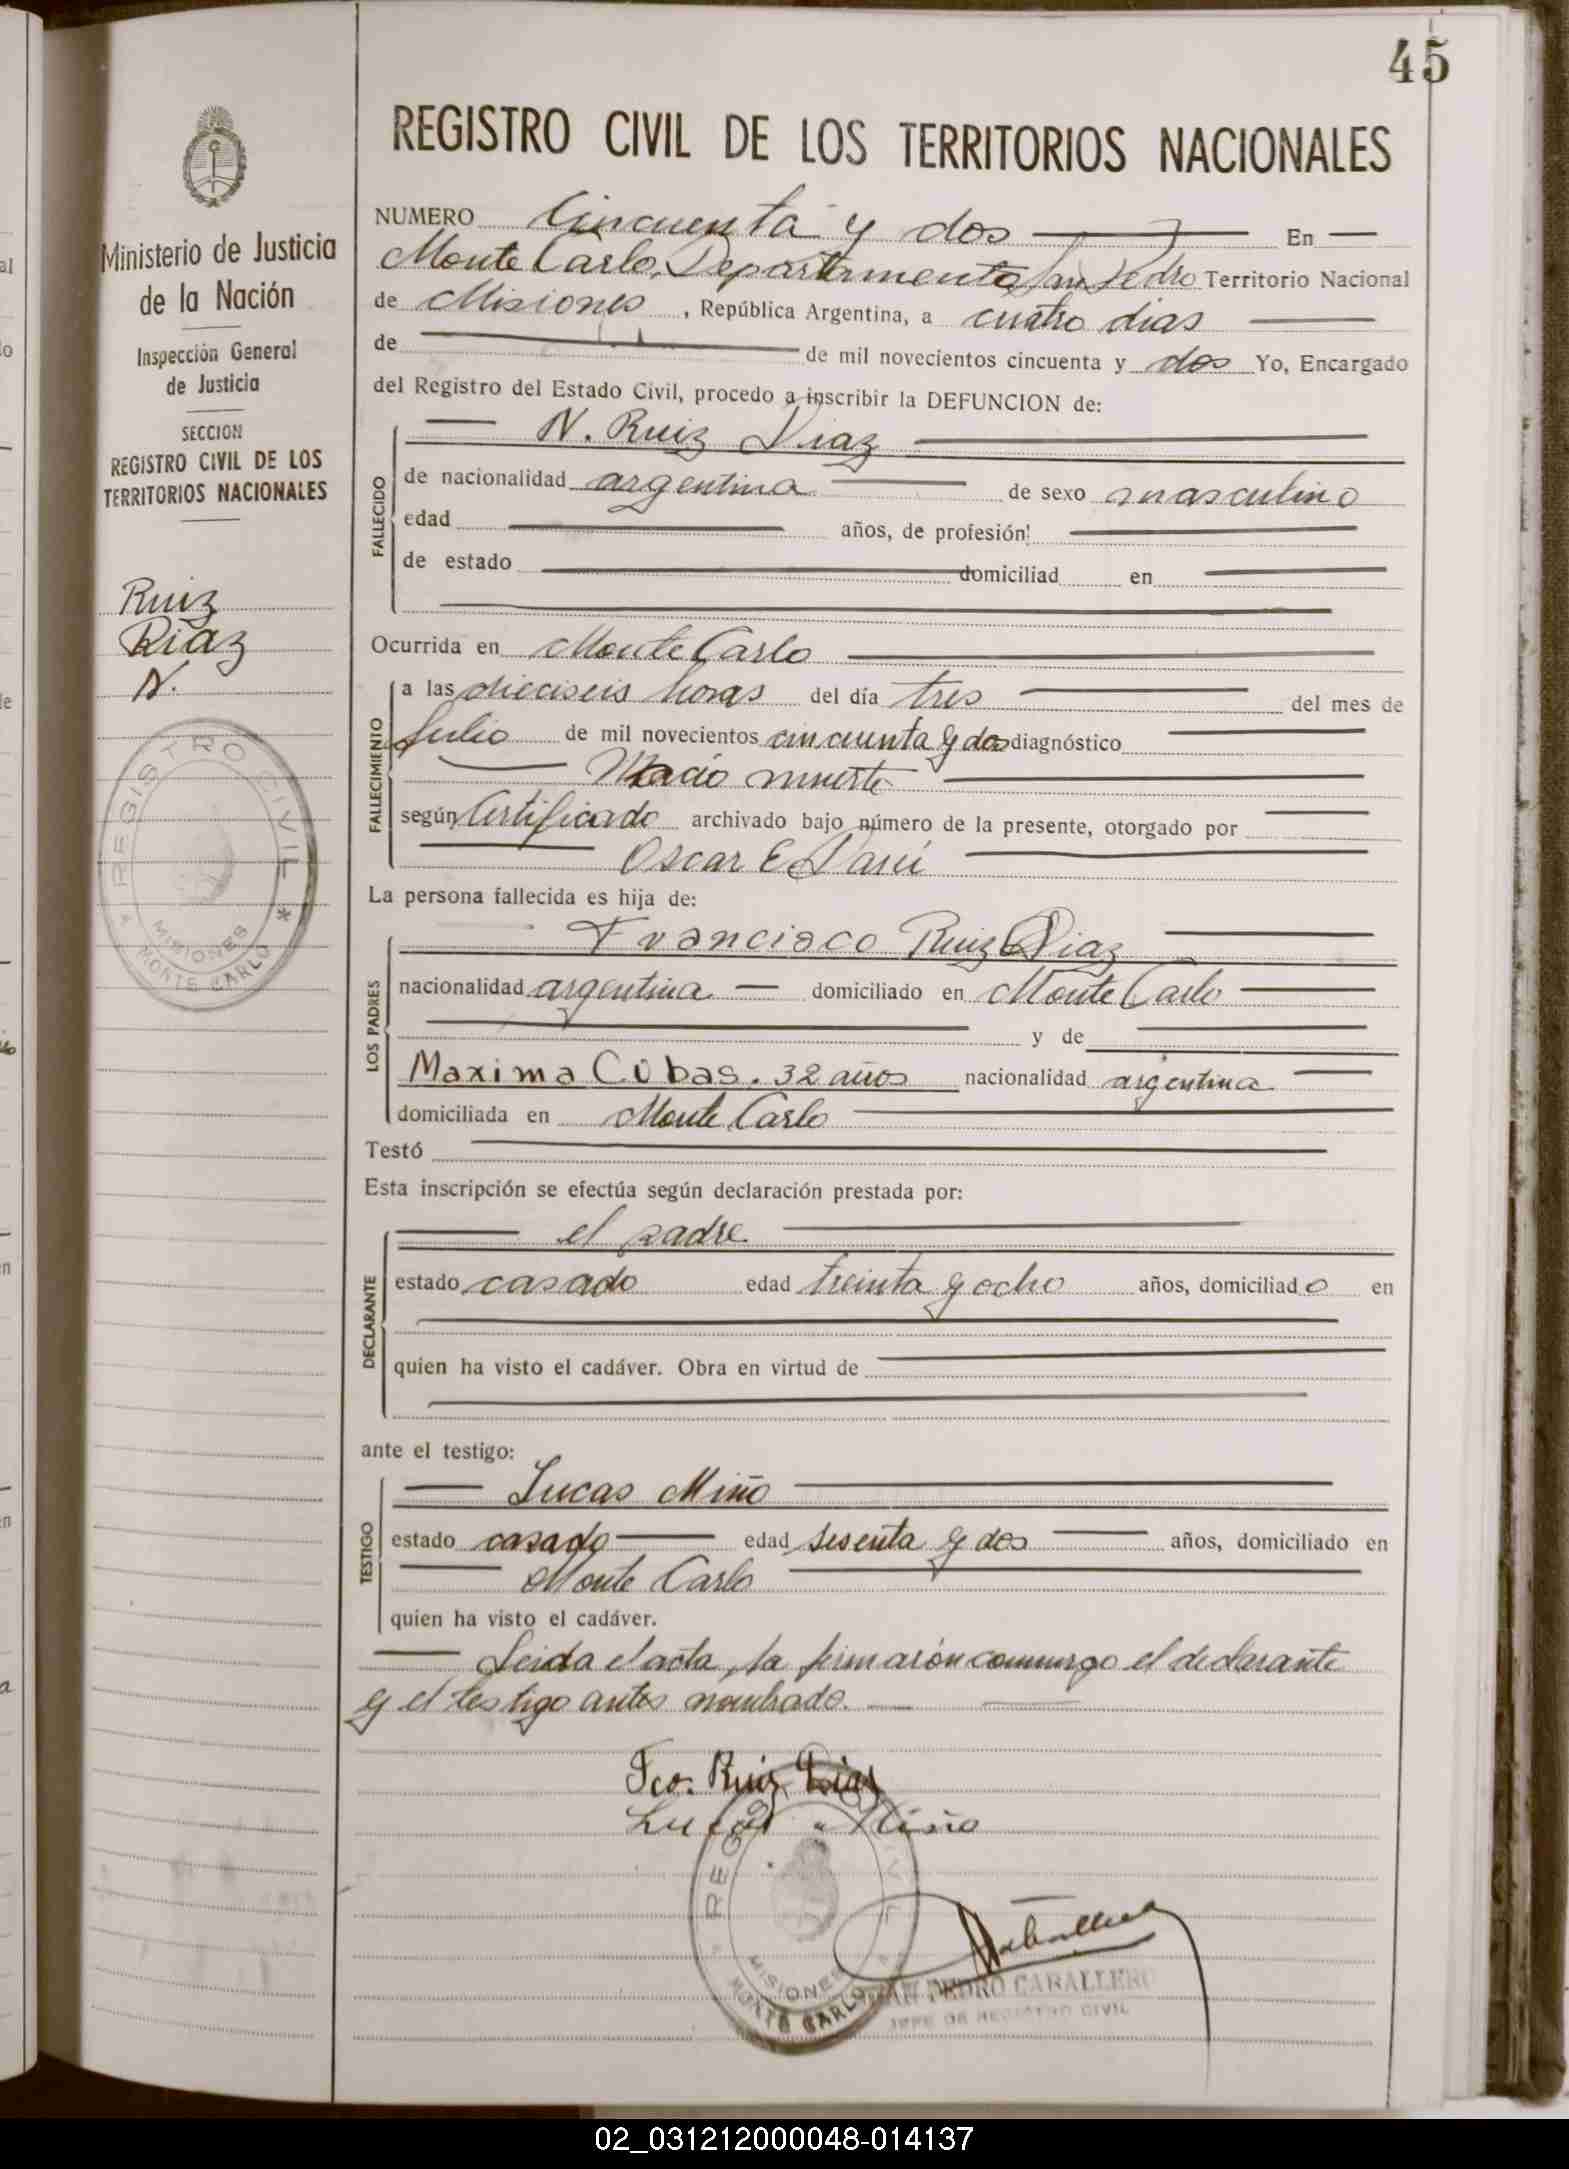 45
REGISTRO CIVIL DE LOS TERRITORIOS NACIONALES
Ministerio de Justicia
de la Nación
Inspección General
de Justicia
SECCION
REGISTRO CIVIL DE LOS
TERRITORIOS NACIONALES
Ruiz
Diaz
N.
REGISTRO CIVIL
MISIONES
MONTE CARLO
NUMERO Cincuenta y dos En
Monte Carlo, Departamento San Pedro Territorio Nacional
de Misiones, República Argentina, a cuatro dias
de de mil novecientos cincuenta y dos Yo, Encargado
del Registro del Estado Civil, procedo a inscribir la DEFUNCION de:
FALLECIDO
N. Ruiz Diaz
de nacionalidad argentina de sexo masculino
edad años, de profesión
de estado domiciliad en
Ocurrida en Monte Carlo
FALLECIMIENTO
a las dieciseis horas del día tres del mes de
Julio de mil novecientos cincuenta y dos diagnóstico
Nacio muerto
según Certificado archivado bajo número de la presente, otorgado por
Oscar E.
La persona fallecida es hija de:
LOS PADRES
Francisco Ruiz Diaz
nacionalidad argentina domiciliado en Monte Carlo
y de
Maxima Cubas. 32 años nacionalidad argentina
domiciliada en Monte Carlo
Testó
Esta inscripción se efectúa según declaración prestada por:
DECLARANTE
el padre
estado casado edad treinta y ocho años, domiciliado en
quien ha visto el cadáver. Obra en virtud de
ante el testigo:
TESTIGO
Lucas Miño
estado casado edad sesenta y dos años, domiciliado en
Monte Carlo
quien ha visto el cadáver.
Leida el acta, la firmarón conmigo el declarante
y el testigo antes nombrado.
Fco. Ruiz Diaz
Lucas Miño
MISIONES
MONTE CARLO
PEDRO CABALLERO
JEFE DE REGISTRO CIVIL
02_031212000048-014137